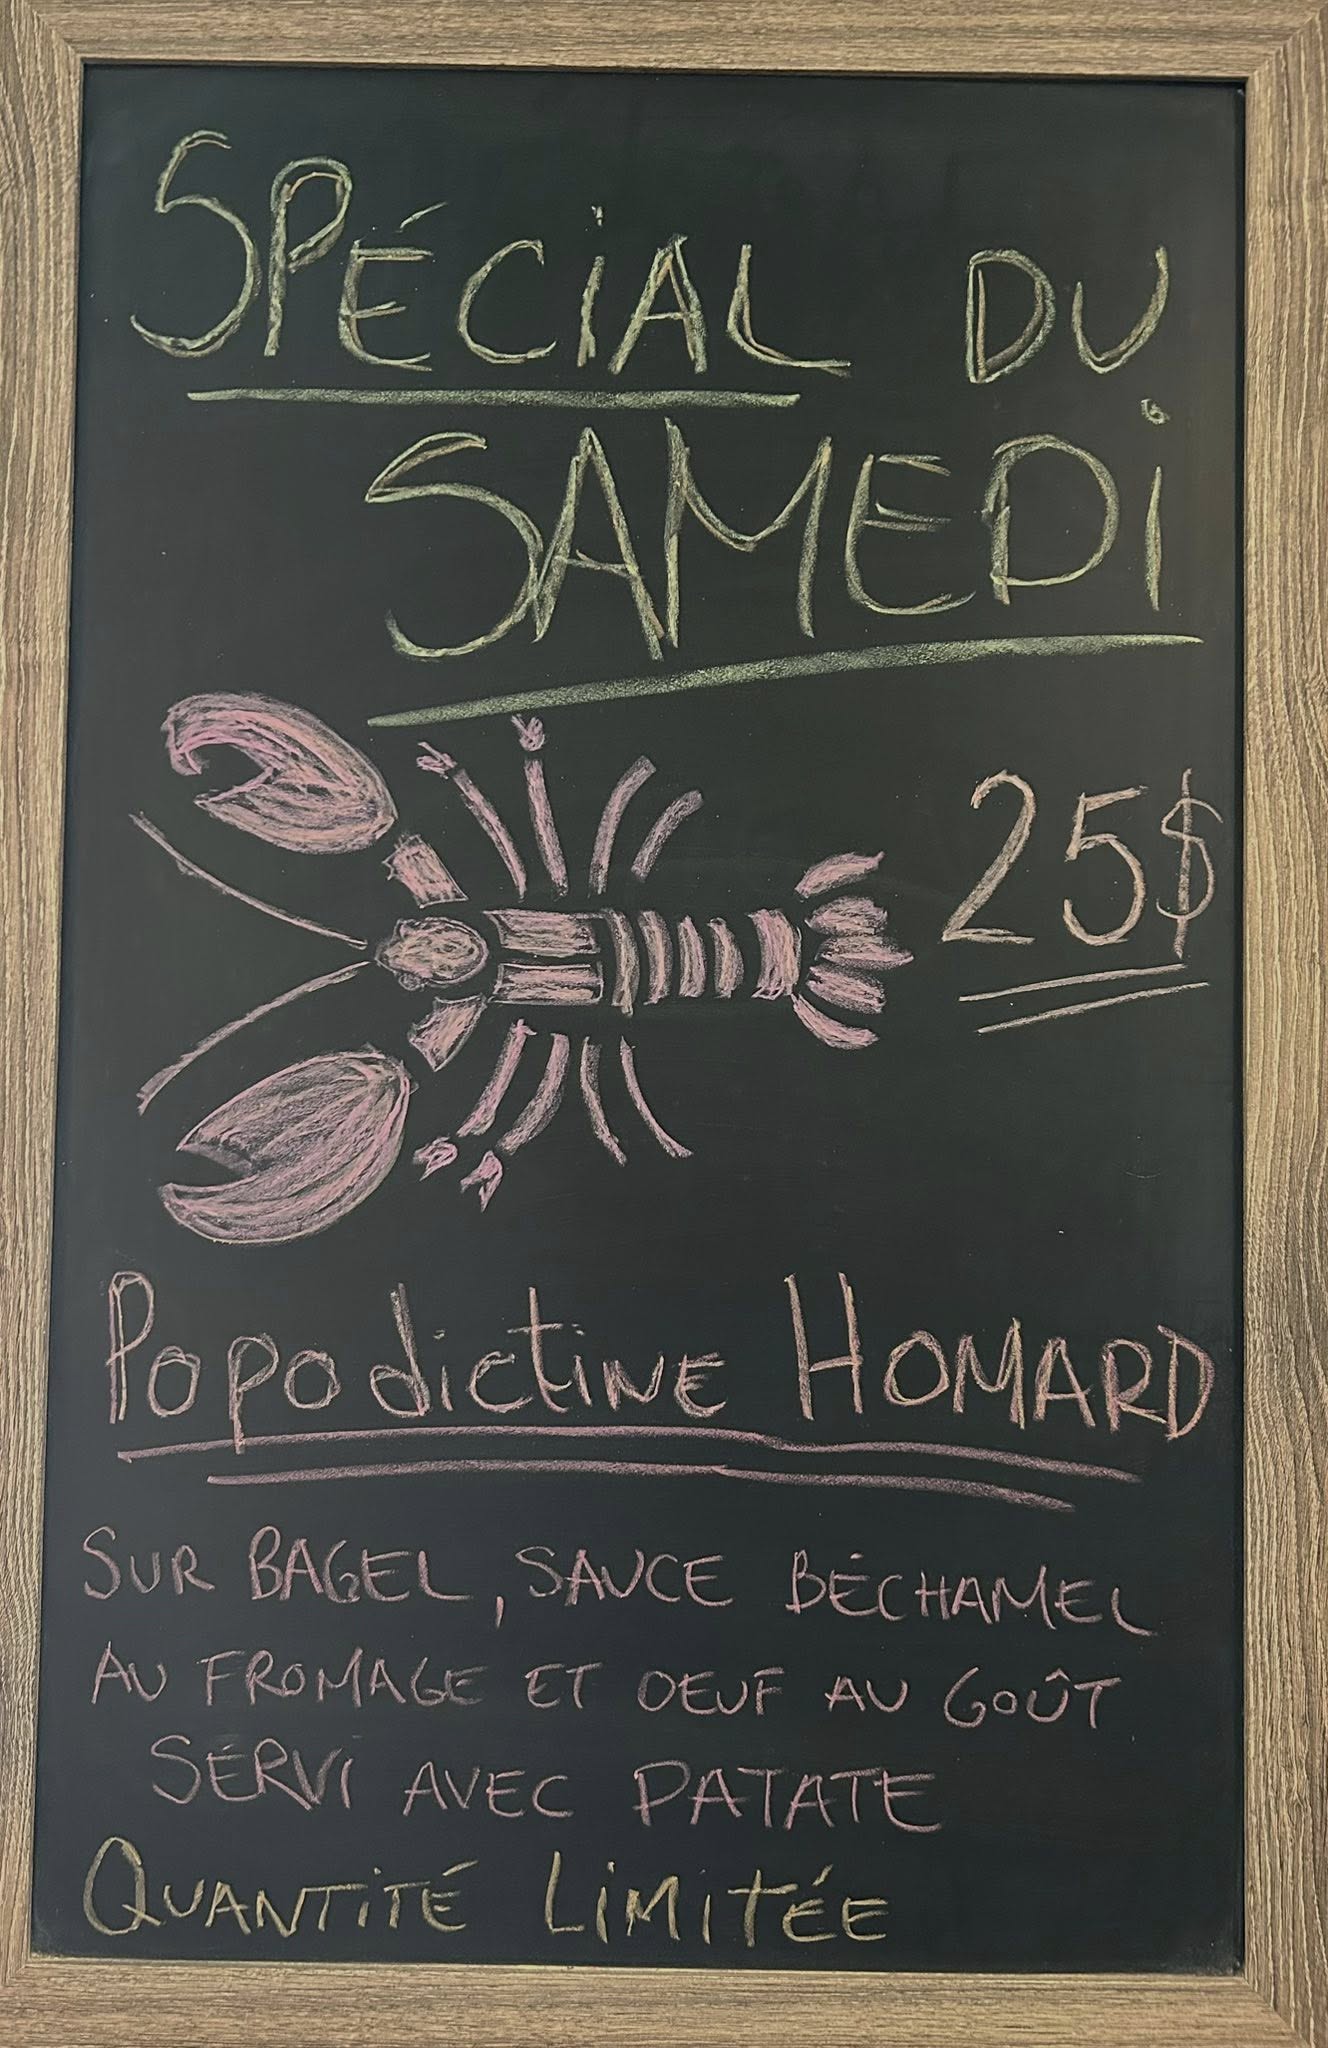 SPÉCIAL DU
SAMEDI
25$
Popodictine HOMARD
SUR BAGEL, SAUCE BÉCHAMEL
AU FROMAGE ET OEUF AU GOÛT
SERVI AVEC PATATE
QUANTITÉ LIMITÉE